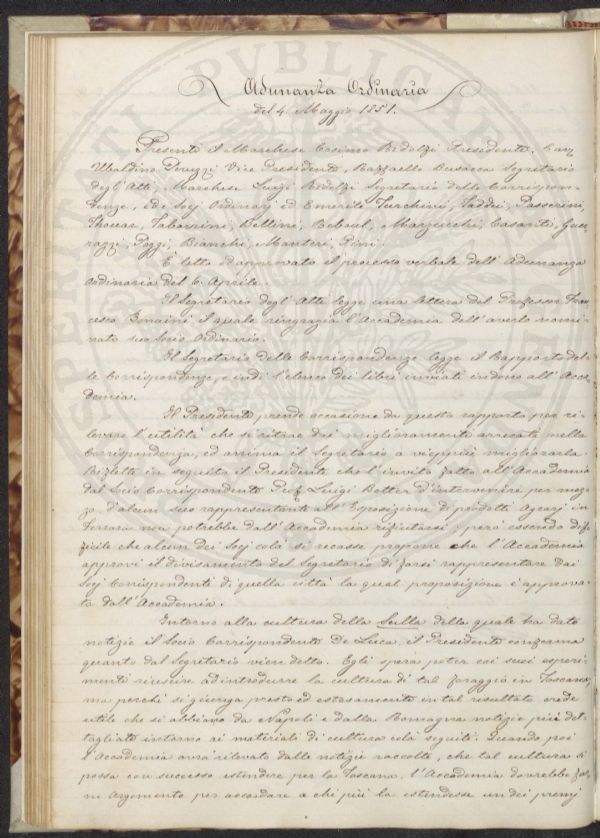 Adunanza Ordinaria
del 4. Maggio 1851.
Presenti il Marchese Cosimo Ridolfi Presidente, Cav.
Ubaldino Peruzzi Vice Presidente, Raffaello Busacca Segretario
degl'Atti, Marchese Luigi Ridolfi Segretario delle Corrispon-
denze, ed i Socj Ordinarj ed Emeriti Turchini, Taddei, Passerini,
Thouar, Tabarrini, Bellini, Reboul, Mazucchi, Casanti, Guer-
razzi, Poggi, Bianchi, Manteri, Gini.
È letto ed approvato il processo verbale dell'Adunanza
ordinaria del 6. Aprile.
Il Segretario degl'Atti legge una lettera del Professor Fran-
cesco Bonaini il quale ringrazia l'Accademia dell'averlo nomi-
nato suo Socio Ordinario.
Il Segretario delle Corrispondenze legge il Rapporto del-
le Corrispondenze, e indi l'elenco dei libri inviati in dono all'Acca-
demia.
Il Presidente prende occasione da questo rapporto per ri-
levare l'utilità che si ritrae dai miglioramenti arrecati nella
Corrispondenza, ed anima il Segretario a vieppiù migliorarla.
Riflette in seguito il Presidente che l'invito fatto all'Accademia
dal Socio Corrispondente Prof. Luigi Botter d'intervenire per mez-
zo d'alcun suo rappresentante all'Esposizione di prodotti Agrarj in
Ferrara non potrebbe dall'Accademia rifiutarsi, però essendo dif-
ficile che alcun dei Socj colà si recasse propone che l'Accademia
approvi il divisamento del Segretario di farsi rappresentare dai
Socj Corrispondenti di quella città la qual proposizione è approva-
ta dall'Accademia.
Intorno alla cultura della Sulla della quale ha dato
notizie il Socio Corrispondente De Luca, il Presidente conferma
quanto dal Segretario vien detto. Egli spera poter coi suoi esperi-
menti riuscire ad introdurre la cultura di tal foraggio in Toscana;
ma perchè si giunga presto ed estesamente in tal resultato crede
utile che si abbiano da Napoli e dalla Romagna notizie più det-
tagliate intorno ai materiali di cultura colà seguiti. Quando poi
l'Accademia avrà rilevato dalle notizie raccolte, che tal cultura si
possa con successo estendere per la Toscana, l'Accademia dovrebbe far-
ne argomento per accordare a chi più la estendesse un dei premj